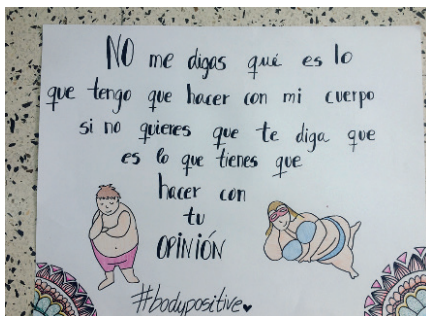 NO me digas qué es lo
que tengo que hacer con mi cuerpo
si no quieres que te diga que
es lo que tienes que
hacer con
tu
OPINIÓN
#bodypositive♥